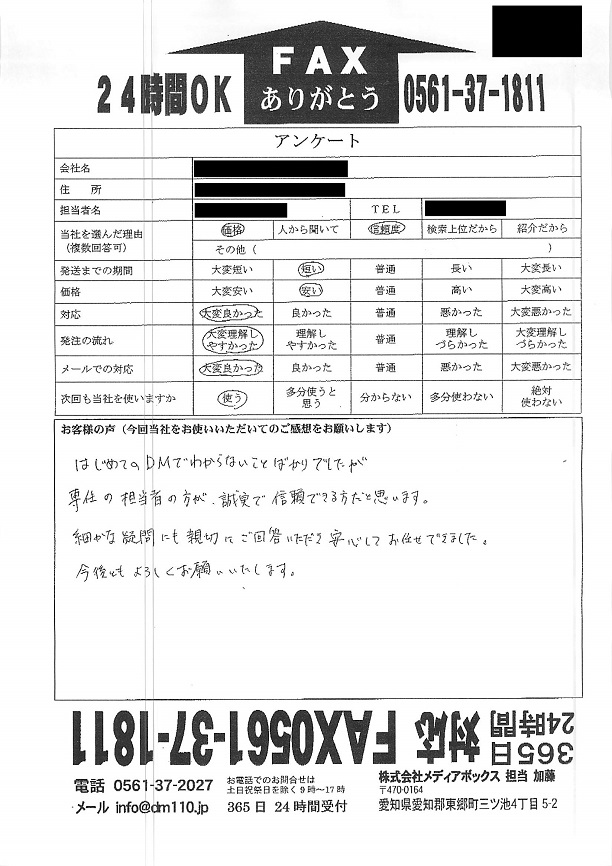 FAX
ありがとう
24時間OK
0561-37-1811
アンケート
会社名
住 所
担当者名 TEL
当社を選んだ理由 (複数回答可) 価格 人から聞いて 信頼度 検索上位だから 紹介だから
その他( )
発送までの期間 大変短い 短い 普通 長い 大変長い
価格 大変安い 安い 普通 高い 大変高い
対応 大変良かった 良かった 普通 悪かった 大変悪かった
発注の流れ 大変理解しやすかった 理解しやすかった 普通 理解しづらかった 大変理解しづらかった
メールでの対応 大変良かった 良かった 普通 悪かった 大変悪かった
次回も当社を使いますか 使う 多分使うと思う 分からない 多分使わない 絶対使わない
お客様の声(今回当社をお使いいただいてのご感想をお願いします)
はじめてのDMでわからないことばかりでしたが
専任の担当者の方が、誠実で信頼できる方だと思います。
細かな疑問にも親切にご回答いただき安心してお任せできました。
今後ともよろしくお願いいたします。
365日
24時間 対応 FAX0561-37-1811
電話 0561-37-2027
メール info@dm110.jp
お電話でのお問合せは
土日祝祭日を除く9時〜17時
365日 24時間受付
株式会社メディアボックス 担当 加藤
〒470-0164
愛知県愛知郡東郷町三ツ池4丁目5-2